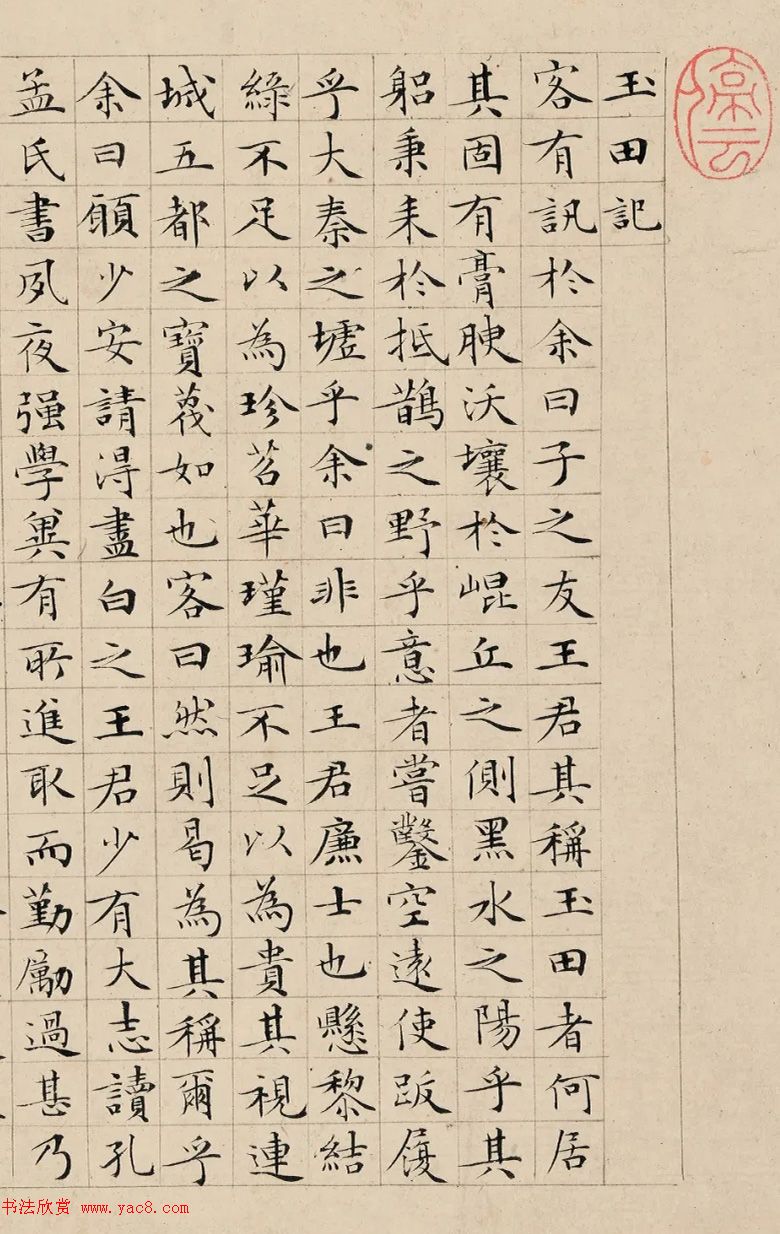 玉田記
客有訊於余曰子之友王君其稱玉田者何居
其固有膏腴沃壤於崐丘之側黑水之陽乎其
躳秉耒於抵鵲之野乎意者嘗鑿空遠使跋履
乎大秦之墟乎余曰非也王君廉士也懸黎結
綠不足以為珍苕華瑾瑜不足以為貴其視連
城五都之寶蔑如也客曰然則曷為其稱爾乎
余曰願少安請得盡白之王君少有大志讀孔
孟氏書夙夜强學兾有所進取而勤勵過甚乃
书法欣赏 www.yac8.com